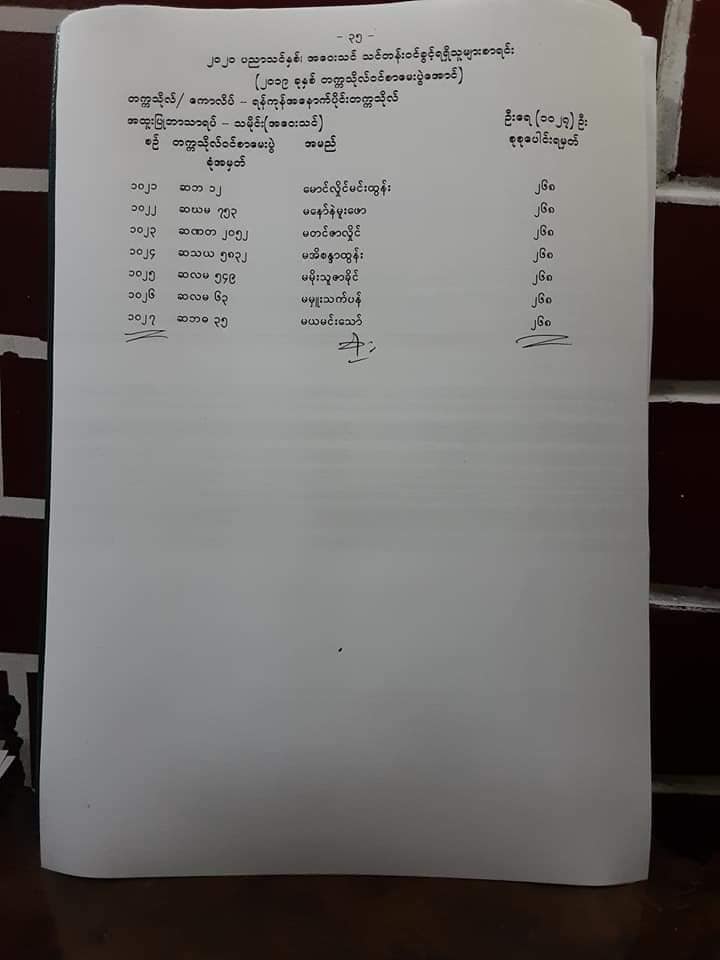 - ၃၅ -
၂၀၂၀ ပညာသင်နှစ်၊ အဝေးသင် သင်တန်းဝင်ခွင့်ရရှိသူများစာရင်း
(၂၀၁၉ ခုနှစ် တက္ကသိုလ်ဝင်စာမေးပွဲအောင်)
တက္ကသိုလ်/ ကောလိပ် - ရန်ကုန်အနောက်ပိုင်းတက္ကသိုလ်
အထူးပြုဘာသာရပ် - သမိုင်း(အဝေးသင်) ဦးရေ (၁၀၂၇) ဦး
စဉ် တက္ကသိုလ်ဝင်စာမေးပွဲ အမည် စုစုပေါင်းရမှတ်
ခုံအမှတ်
၁၀၂၁ ဆဘ ၁၂ မောင်လှိုင်မင်းထွန်း ၂၆၈
၁၀၂၂ ဆဃမ ၇၅၃ မနော်နဲမူးဖော ၂၆၈
၁၀၂၃ ဆဏတ ၂၀၅၂ မတင်ဇာလှိုင် ၂၆၈
၁၀၂၄ ဆသယ ၅၈၃၂ မအိစန္ဒာထွန်း ၂၆၈
၁၀၂၅ ဆလမ ၅၄၉ မမိုးသူဇာခိုင် ၂၆၈
၁၀၂၆ ဆလမ ၆၃ မမှူးသက်ပန် ၂၆၈
၁၀၂၇ ဆဘဓ ၃၅ မယမင်းသော် ၂၆၈